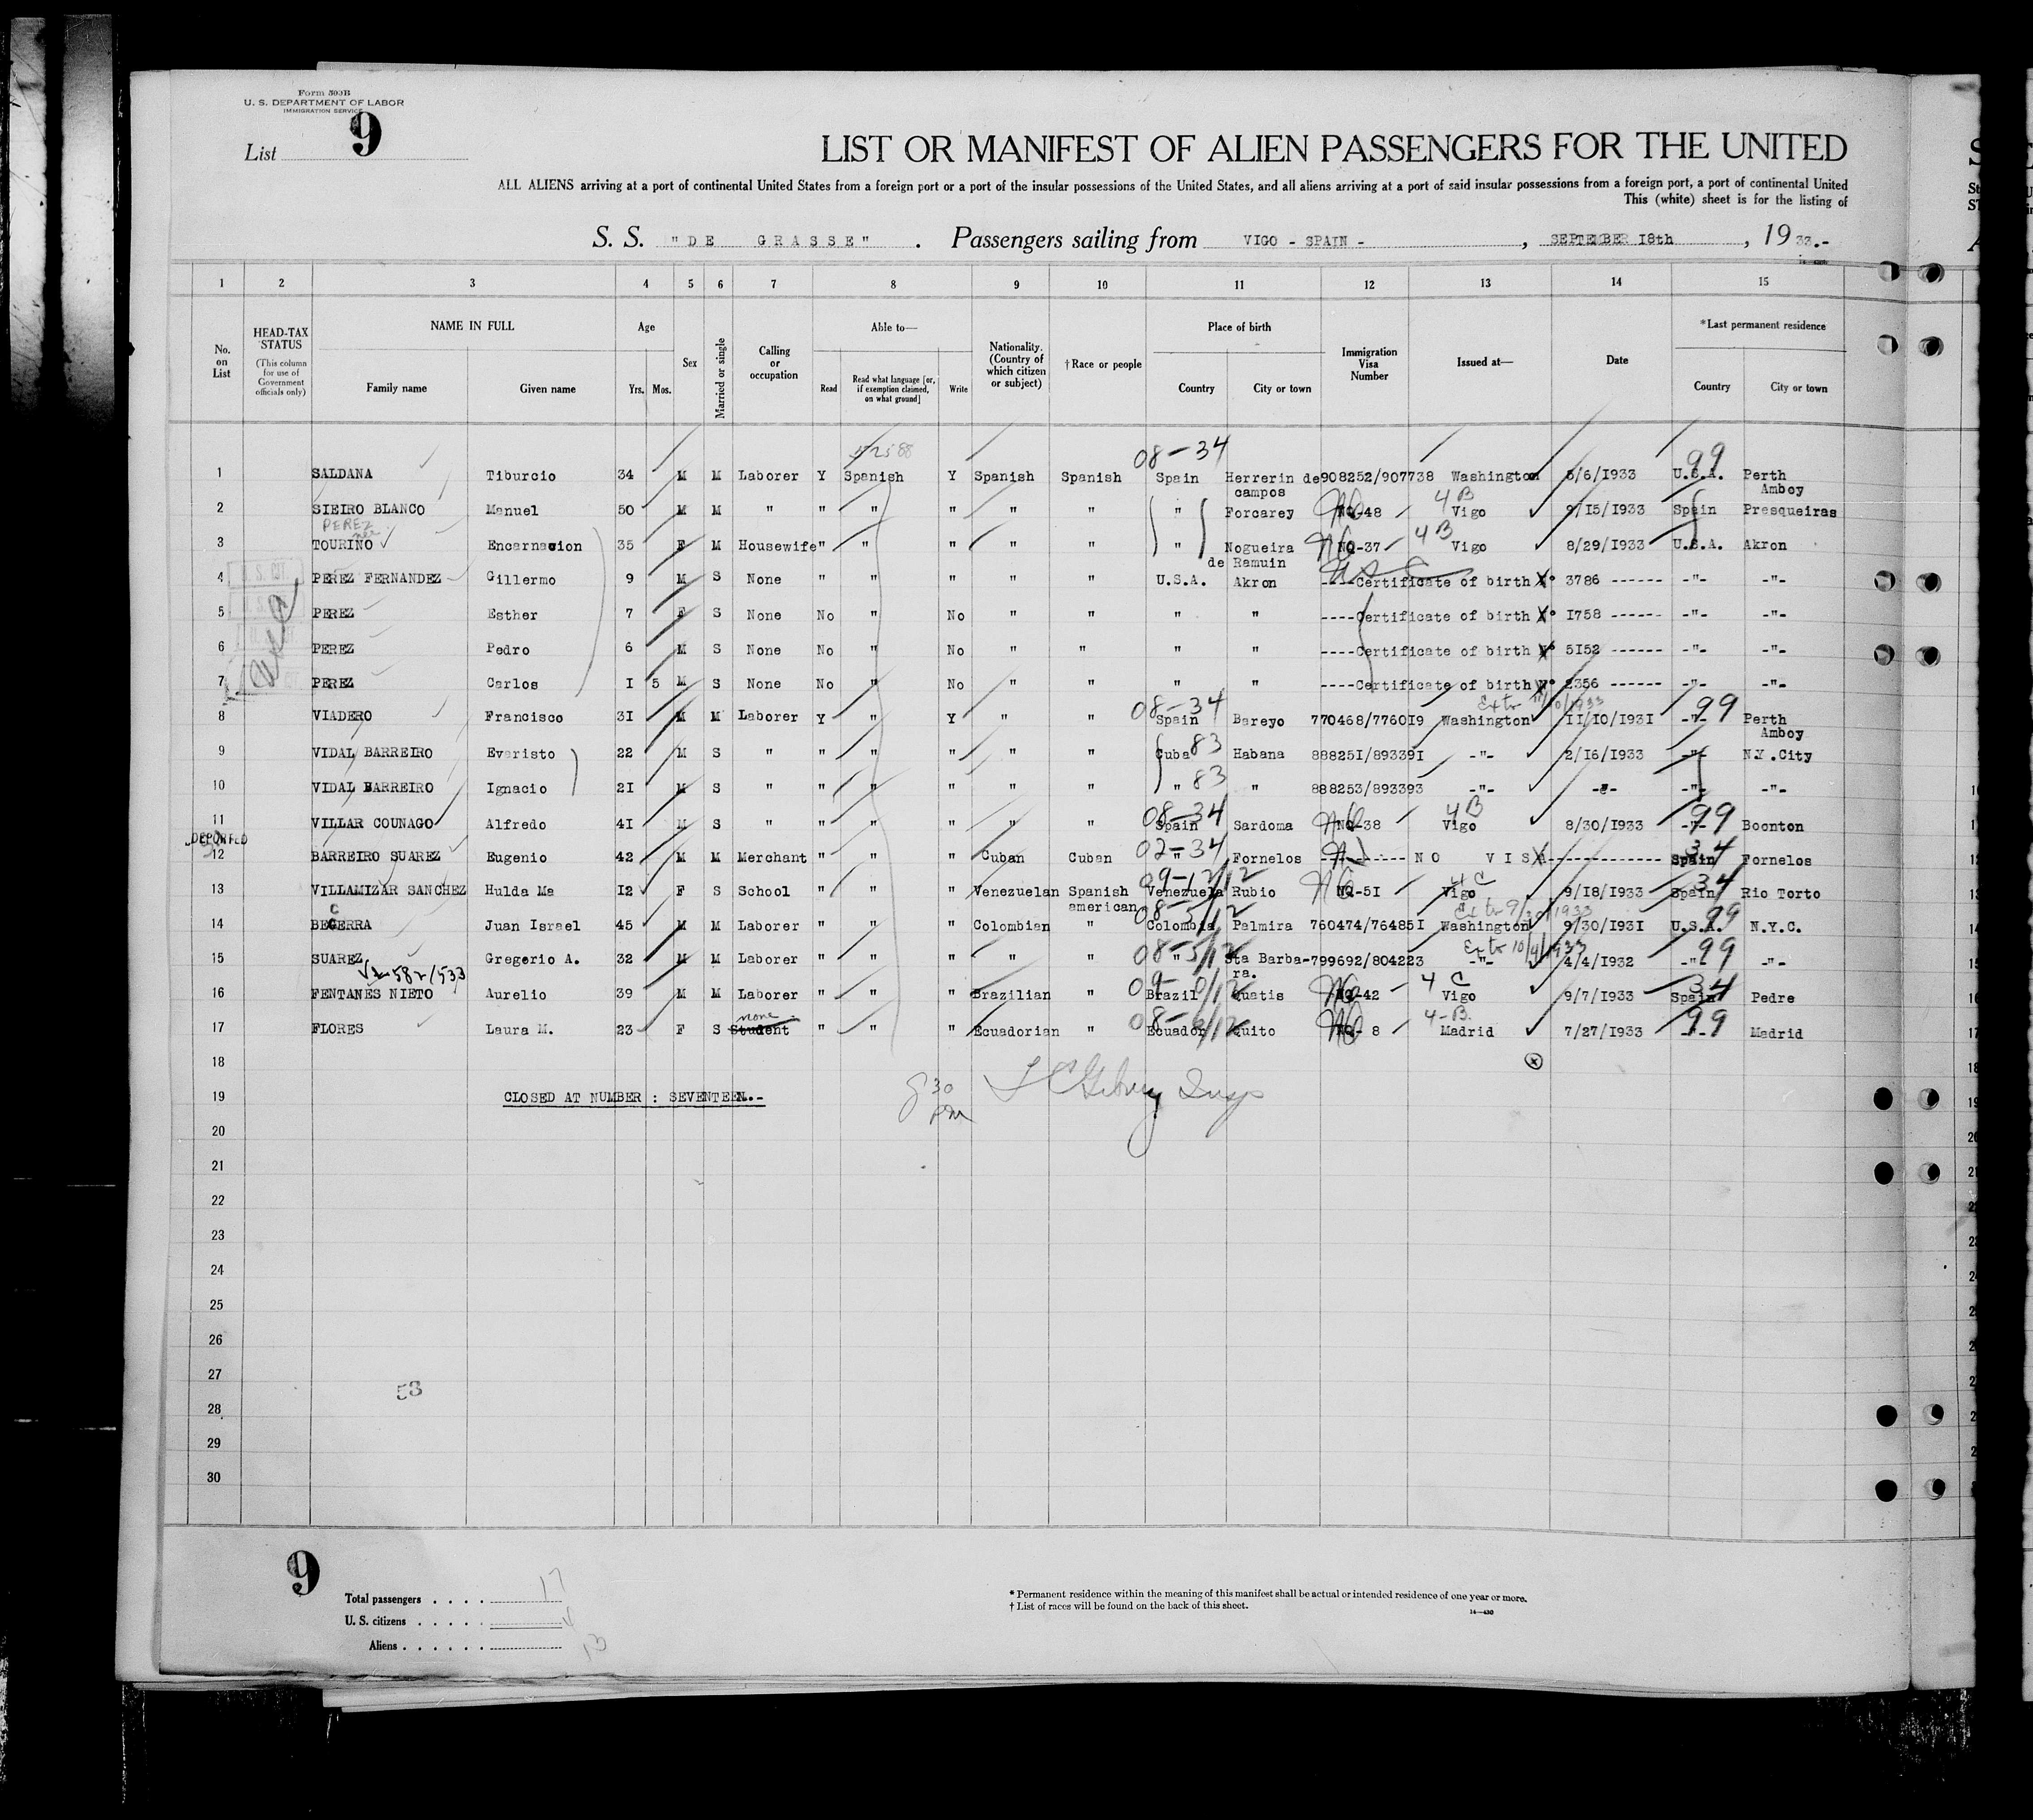 Form 500B
U. S. DEPARTMENT OF LABOR
IMMIGRATION SERVICE
List 9
LIST OR MANIFEST OF ALIEN PASSENGERS FOR THE UNITED
ALL ALIENS arriving at a port of continental United States from a foreign port or a port of the insular possessions of the United States, and all aliens arriving at a port of said insular possessions from a foreign port, a port of continental United
This (white) sheet is for the listing of
S. S. "DE GRASSE" . Passengers sailing from VIGO - SPAIN - , SEPTEMBER I8th , 1933.-
1 2 3 4 5 6 7 8 9 10 11 12 13 14 15
No. on List
HEAD-TAX STATUS (This column for use of Government officials only)
NAME IN FULL Family name Given name
Age Yrs. Mos.
Sex
Married or single
Calling or occupation
Able to— Read Read what language [or, if exemption claimed, on what ground] Write
Nationality. (Country of which citizen or subject)
†Race or people
Place of birth Country City or town
Immigration Visa Number
Issued at—
Date
*Last permanent residence Country City or town
08-34 99
1 SALDANA Tiburcio 34 M M Laborer Y Spanish Y Spanish Spanish Spain Herrerin de campos 908252/907738 Washington 6/6/I933 U.S.A. Perth Amboy
2 SIEIRO BLANCO Manuel 50 M M " " " " " " " Forcarey NQ-48 4 B Vigo 9/I5/I933 Spain Presqueiras
PEREZ
3 TOURINO Encarnacion 35 F M Housewife " " " " " " Nogueira de Ramuin NQ-37 4 B Vigo 8/29/I933 U.S.A. Akron
4 PEREZ FERNANDEZ Gillermo 9 M S None " " " " " U.S.A. Akron ----Certificate of birth N° 3786 ------ -"- -"-
5 PEREZ Esther 7 F S None No " No " " " " ----Certificate of birth N° I758 ------ -"- -"-
6 PEREZ Pedro 6 M S None No " No " " " " ----Certificate of birth N° 5I52 ------ -"- -"-
7 PEREZ Carlos I 5 M S None No " No " " " " ----Certificate of birth N° 2356 ------ -"- -"-
08-34 99
8 VIADERO Francisco 3I M M Laborer Y " Y " " Spain Bareyo 770468/7760I9 Washington II/I0/I93I -"- Perth Amboy
9 VIDAL BARREIRO Evaristo 22 M S " " " " " " Cuba 83 Habana 88825I/89339I -"- 2/I6/I933 -"- N.Y.City
10 VIDAL BARREIRO Ignacio 2I M S " " " " " " " 83 " 888253/893393 -"- -"- -"- -"-
08-34 4 B 99
11 VILLAR COUNAGO Alfredo 4I M S " " " " " " Spain Sardoma NQ-38 Vigo 8/30/I933 -"- Boonton
DEPORTED
02-34 34
12 BARREIRO SUAREZ Eugenio 42 M M Merchant " " " Cuban Cuban " Fornelos ------- NO VISA ------------ Spain Fornelos
09-12/12 4 C 34
13 VILLAMIZAR SANCHEZ Hulda Ma I2 F S School " " " Venezuelan Spanish american Venezuela Rubio NQ-5I Vigo 9/I8/I933 Spain Rio Torto
C
08-5/12 Ex to 9/30/1933 99
14 BEGERRA Juan Israel 45 M M Laborer " " " Colombian " Colombia Palmira 760474/76485I Washington 9/30/I93I U.S.A. N.Y.C.
08-5/12 Ex to 10/4/1933 99
15 SUAREZ Gregorio A. 32 M M Laborer " " " " " " Sta Barbara. 799692/804223 -"- 4/4/I932 -"- -"-
582/533
09-0/12 4 C 34
16 FENTANES NIETO Aurelio 39 M M Laborer " " " Brazilian " Brazil Quatis NQ-42 Vigo 9/7/I933 Spain Pedre
none
08-6/12 4-B 99
17 FLORES Laura M. 23 F S Student " " " Ecuadorian " Ecuador Quito NQ- 8 Madrid 7/27/I933 -"- Madrid
18
19 CLOSED AT NUMBER : SEVENTEEN.-
8 30 PM
20
21
22
23
24
25
26
27
53
28
29
30
9
Total passengers . . . . 17
U. S. citizens . . . . .
Aliens . . . . . . 13
* Permanent residence within the meaning of this manifest shall be actual or intended residence of one year or more.
† List of races will be found on the back of this sheet.